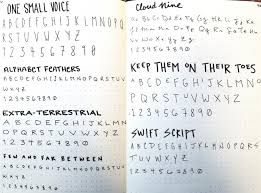 ONE SMALL VOICE
ABCDEFGHIJKLMNOPQ
RSTUVWXYZ
1234567890
ALPHABET FEATHERS
ABCDEFGHIJKLMNOPQRSTUV
WXYZ
1234567890
EXTRA-TERRESTRIAL
ABCDEFGHIJKLMNO
PQRSTUVWXYZ
1234567890
FEW AND FAR BETWEEN
1234567890
Cloud Nine
Aa Bb Cc Dd Ee Ff Gg Hh Ii
1234567890
KEEP THEM ON THEIR TOES
ABCDEFGHIJKLMNO
PQRSTUVWXYZ
1234567890
SWIFT SCRIPT
1234567890